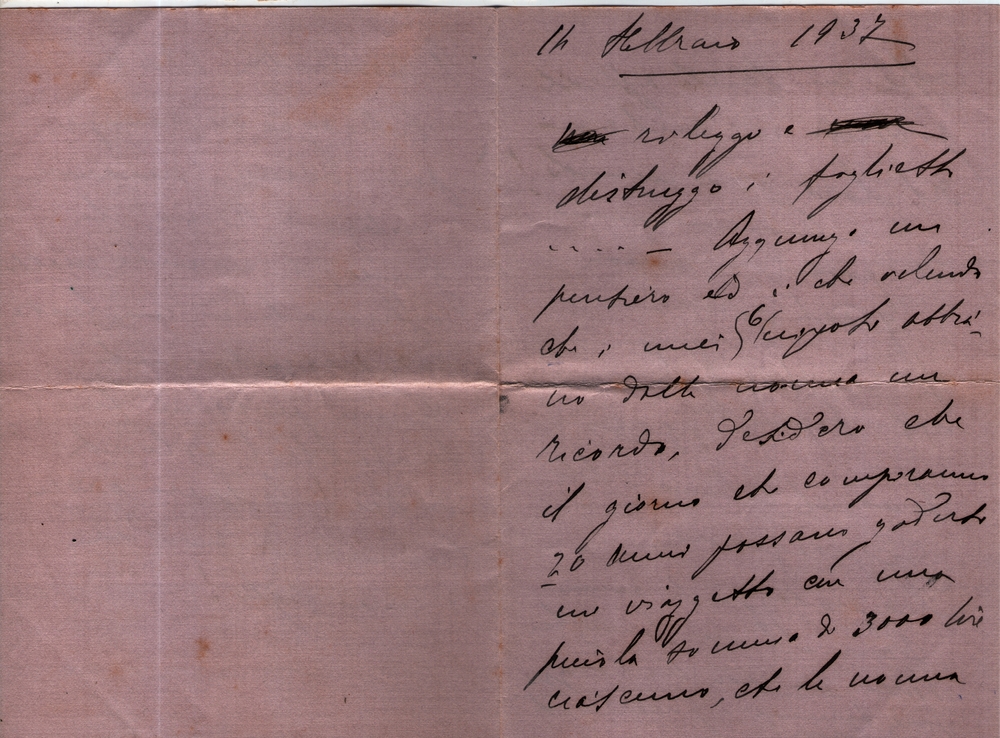 14 Febbraio 1937
rileggo e
distruggo i foglietti
..... — Aggiungo un
pensiero ed è che volendo
che i miei 6 nipoti abbia-
no dalla nonna un
ricordo, desidero che
il giorno che compiranno
20 anni possano godersi
un viaggetto con una
piccola somma di 3000 lire
ciascuno, che la nonna